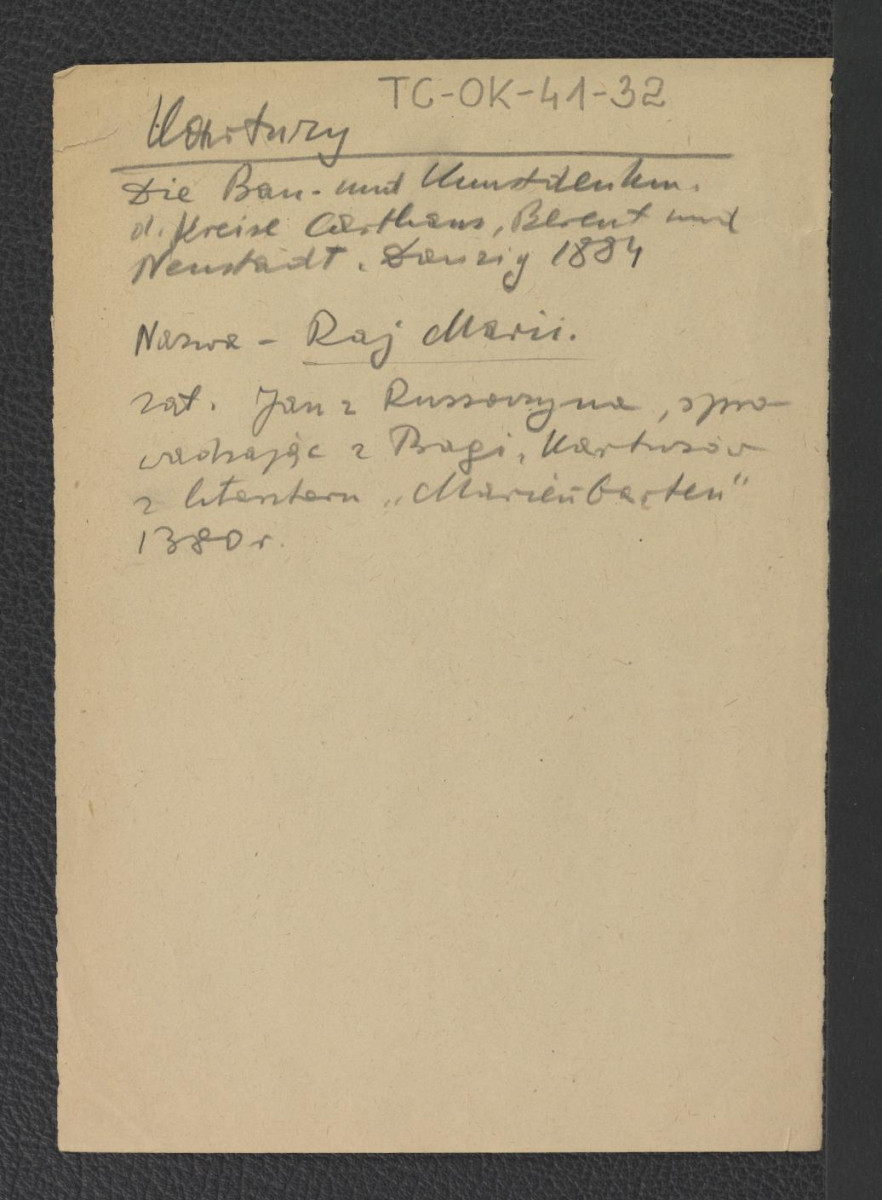 TC-OK-41-32
Kartuzy
Die Bau- und Kunstdenkm.
d. Kreise Carthaus, Berent und
Neustadt. Danzig 1884
Nazwa - Raj Marii.
zał. Jan z Russoczyna, spro-
wadzając z Pragi, Kartuzów
z klasztoru „Mariengarten"
1380 r.